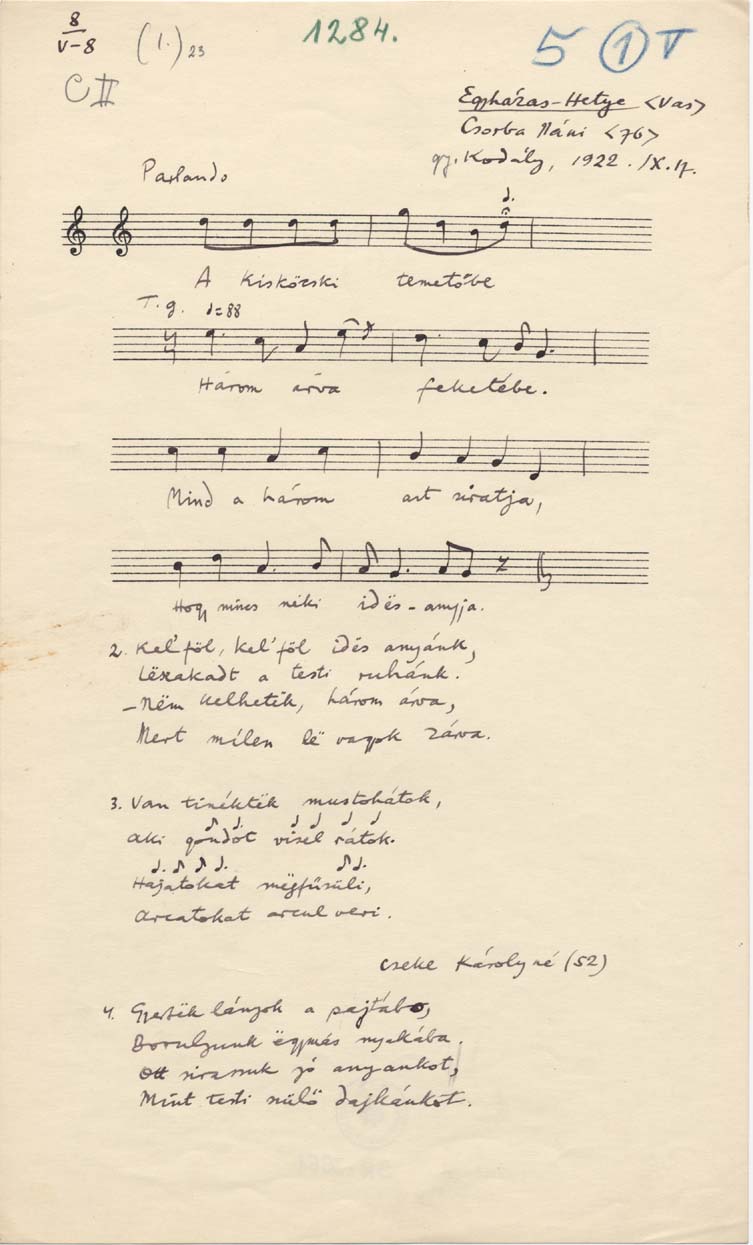 8
V-8
(1.) 23
1284.
5 ① V
C II
Egyházas-Hetye <Vas>
Csorba Náni <76>
gy. Kodály, 1922. IX. 17.
Parlando
A Kisközski temetőbe
T. g. ♩=88
Három árva feketébe.
Mind a három azt siratja,
Hogy nincs néki idës-anyja.
2. Kel' föl, kel' föl idës anyánk,
Lëszakadt a testi ruhánk.
-Nëm kelhetëk, három árva,
Mert mélen lë vagyok zárva.
3. Van tinéktëk mustohátok,
aki gondot visel rátok.
Hajatokat mëgfűsüli,
Arcatokat arcul veri.
Cseke Károlyné (52)
4. Gyertëk lányok a pajtábo,
Boruljunk ëgymás nyakába.
Ott sirassuk jó anyankot,
Mint testi szülő dajkánkot.